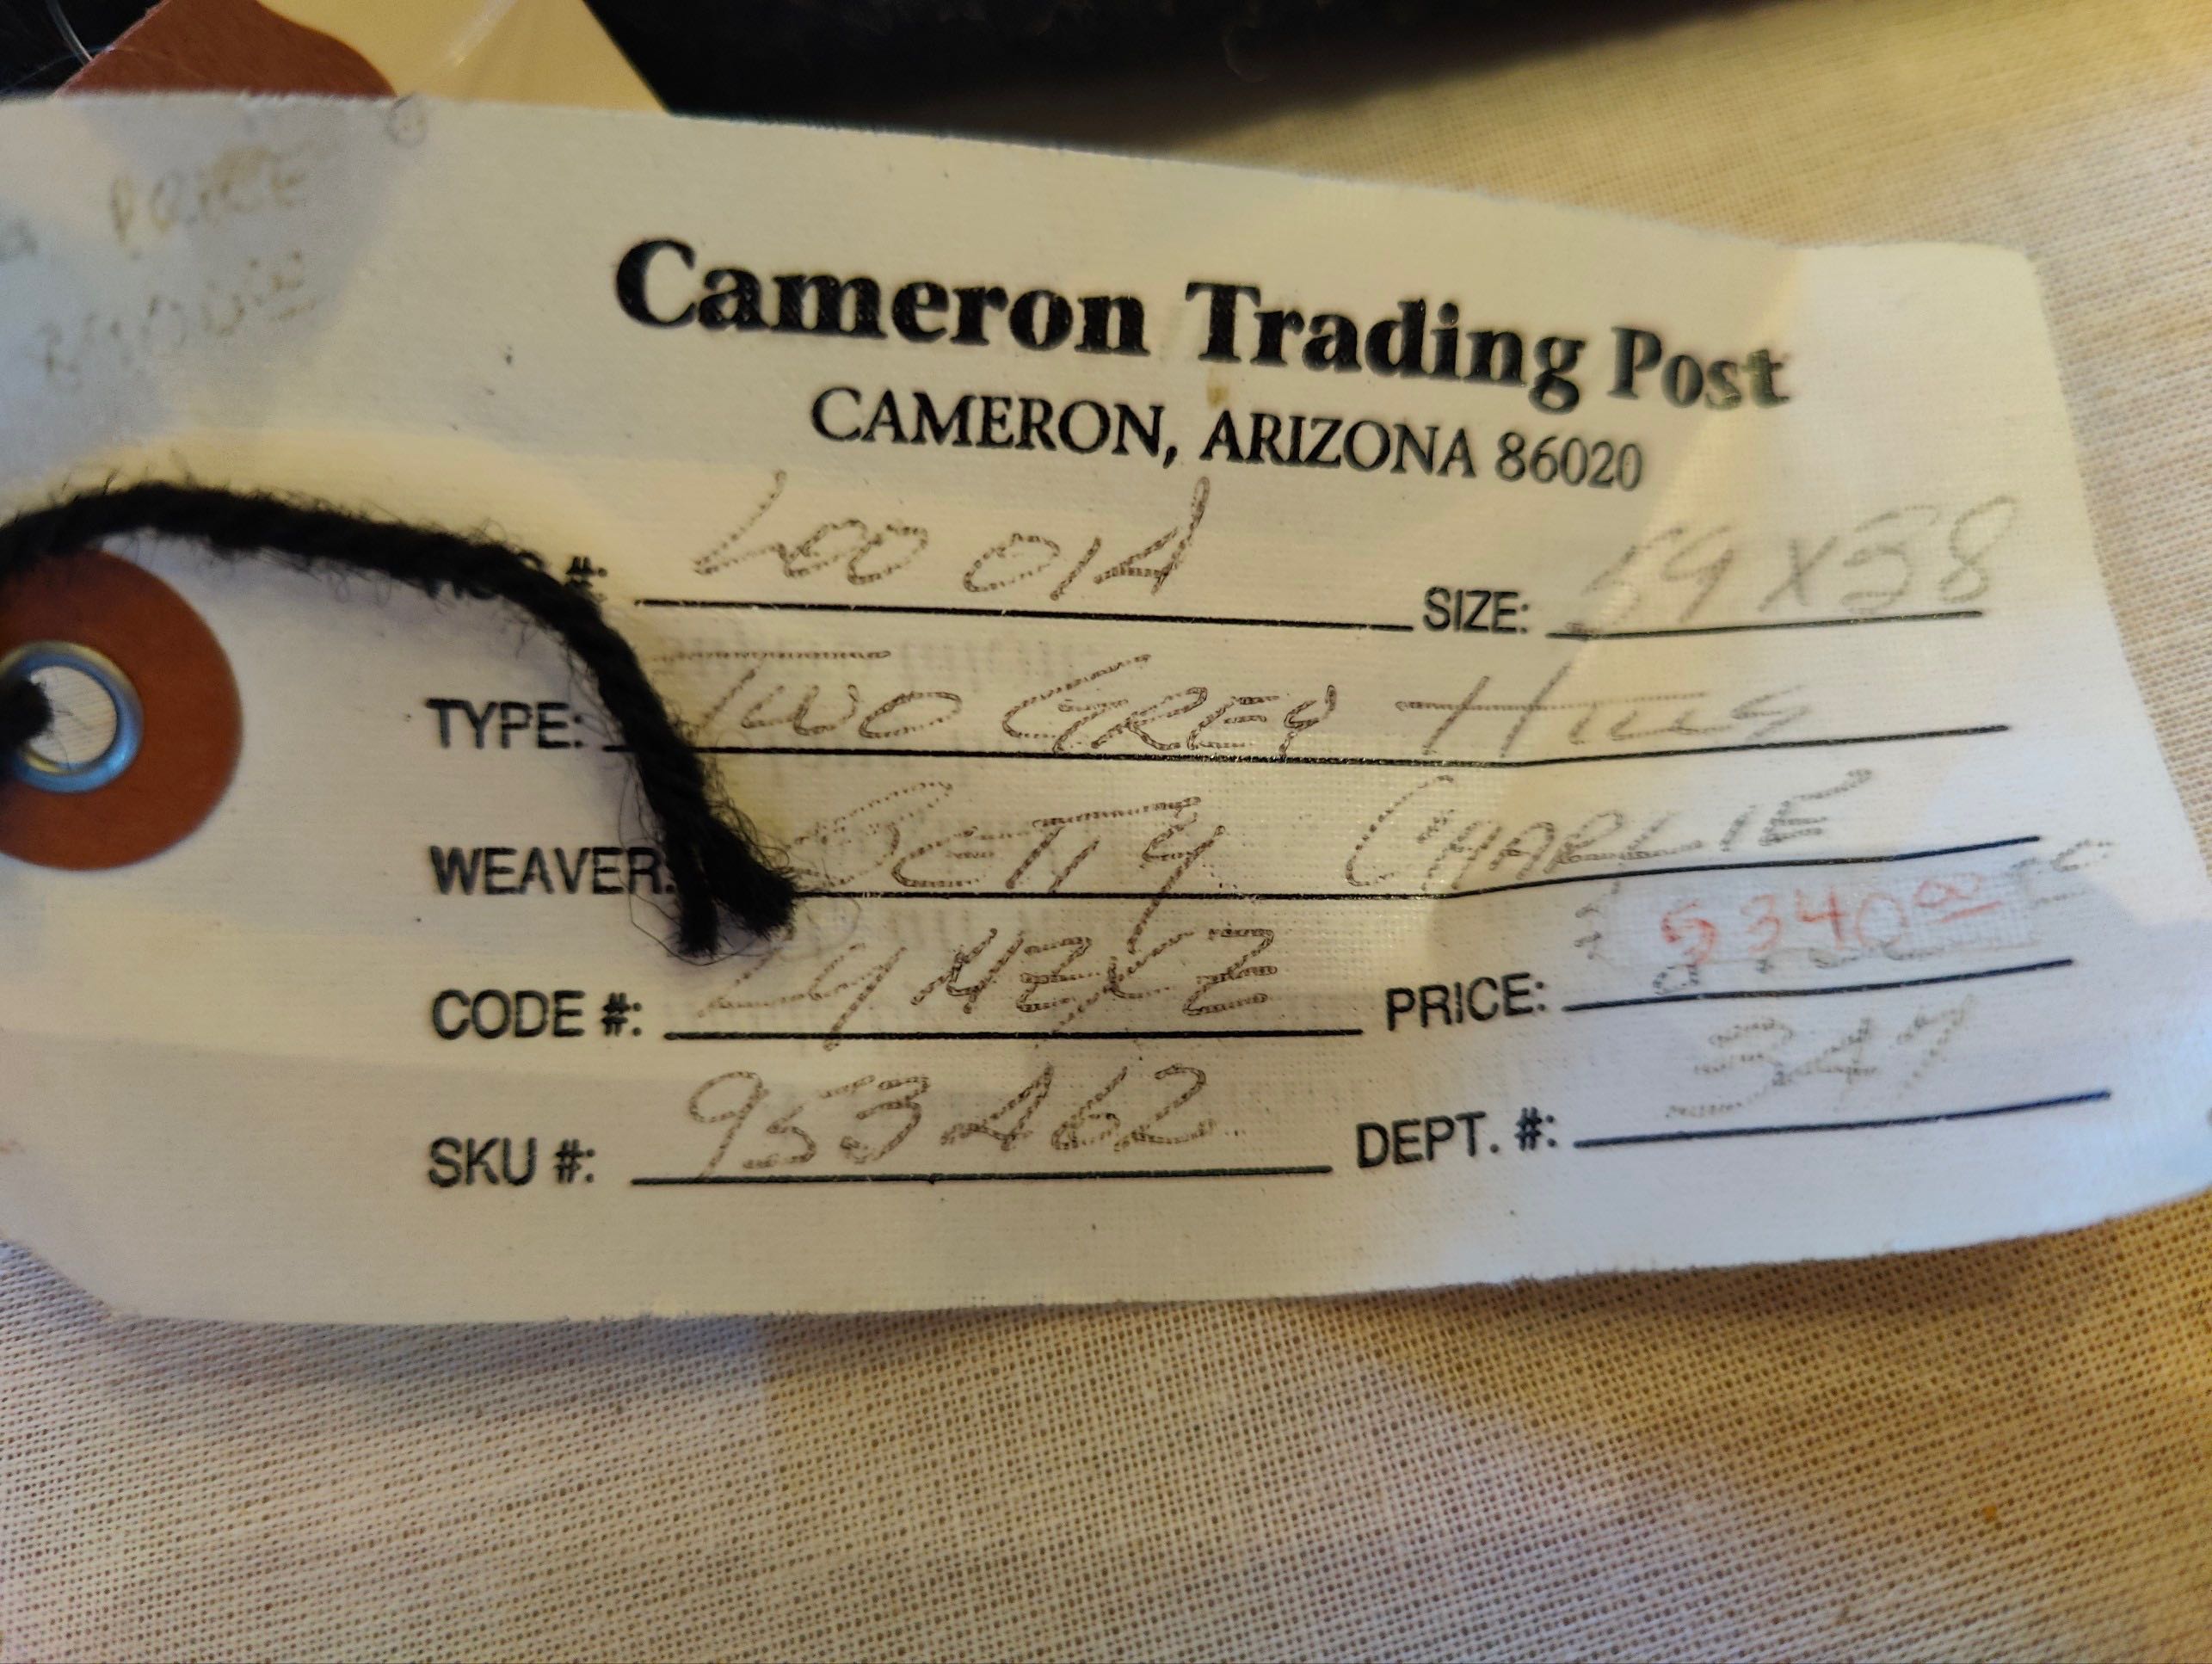 PRICE
Cameron Trading Post
CAMERON, ARIZONA 86020
#: L00 01A SIZE: 59 X 38
TYPE: TWO GREY HILLS
WEAVER: BETTY CHARLIE
CODE #: PRICE: 5340.00
SKU #: 953462 DEPT. #: 347